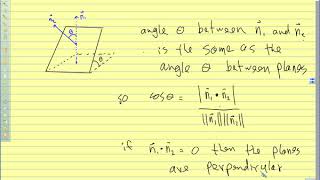 n⃗₂ n⃗₁
θ
θ
angle θ between n⃗₁ and n⃗₂
is the same as the
angle θ between planes
so cos θ = |n⃗₁ • n⃗₂| / ||n⃗₁|| ||n⃗₂||
if n⃗₁ • n⃗₂ = 0 then the planes
are perpendicular